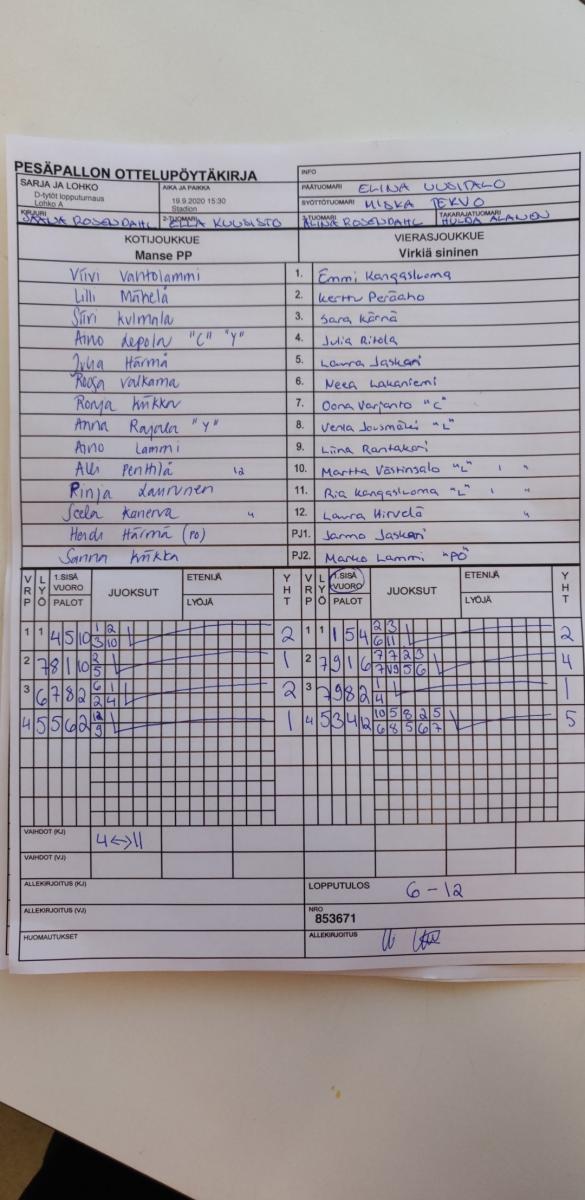 PESÄPALLON OTTELUPÖYTÄKIRJA
INFO
SARJA JA LOHKO
D-tytöt lopputurnaus
Lohko A
AIKA JA PAIKKA
19.9.2020 15:30
Stadion
PÄÄTUOMARI ELINA UUSITALO
SYÖTTÖTUOMARI MISKA TERVO
KIRJURI ROSENDAHL
2-TUOMARI ELLA KUUSISTO
3-TUOMARI ALINA ROSENDAHL
TAKARAJATUOMARI HULDA ALANEN
KOTIJOUKKUE
Manse PP
VIERASJOUKKUE
Virkiä sininen
Viivi Vantolammi 1. Emmi Kangasluoma
Lilli Mähelä 2. Kerttu Peräaho
Siiri Kulmala 3. Sara Kärnä
Aino Lepola "C" "Y" 4. Julia Ritola
Julia Härmä 5. Laura Jaskari
Roosa Valkama 6. Neea Lakaniemi
Ronja Kiikka 7. Oona Varjanto "C"
Anna Rajala "Y" 8. Venla Jousmäki "L"
Aino Lammi 9. Liina Rantakari
Alli Penttilä 12 10. Martta Västinsalo "L" ı "
Rinja Laurunen 11. Ria Kangasluoma "L" ı "
Seela Kanerva " 12. Laura Hirvelä "
Heidi Härmä (PO) PJ1. Jarmo Jaskari
Sanna Kiikka PJ2. Marko Lammi "PÖ"
VRP LYÖ 1.SISÄVUORO PALOT JUOKSUT ETENIJÄ LYÖJÄ YHT VRP LYÖ 1.SISÄVUORO PALOT JUOKSUT ETENIJÄ LYÖJÄ YHT
1 1 4 5 10 1 2 2 1 1 1 5 4 2 3 2
3 10 6 11
2 7 8 1 10 2 1 2 7 9 1 6 7 7 2 3 4
5 5 6
3 6 7 8 2 6 1 2 3 7 9 8 2 1 1
2 4 4
4 5 5 6 2 12 1 4 5 3 4 12 10 5 8 2 5 5
9 6 8 5 6 7
VAIHDOT (KJ) 4↔11
VAIHDOT (VJ)
ALLEKIRJOITUS (KJ)
LOPPUTULOS 6-12
ALLEKIRJOITUS (VJ)
NRO
853671
HUOMAUTUKSET
ALLEKIRJOITUS